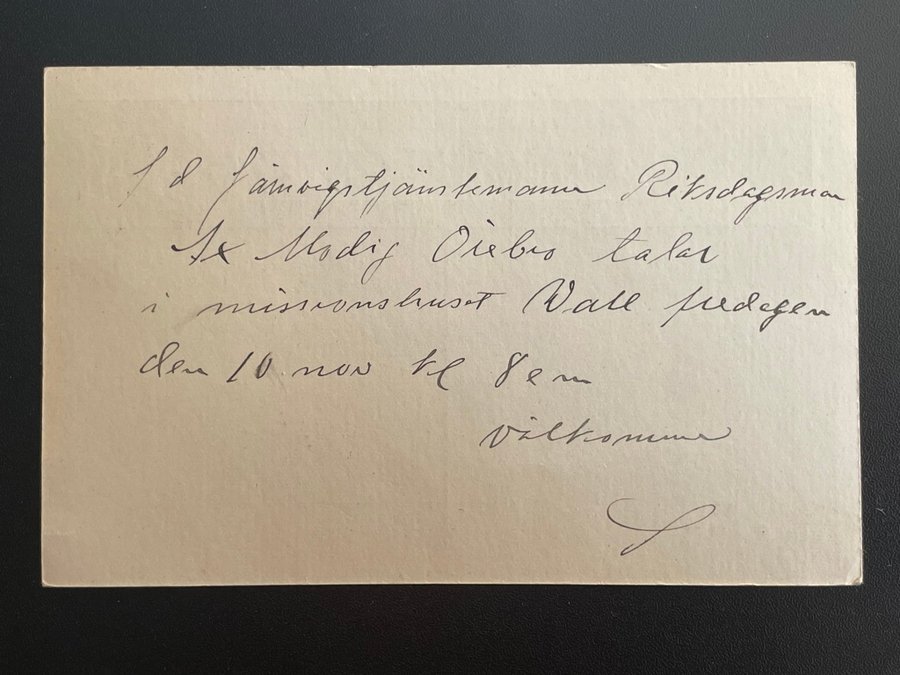 f d Järnvigstjänstemann Riksdagsman
Ax Modig Örebro talar
i missionshuset Vall fredagen
den 10 nov kl 8 em
Välkomna
S